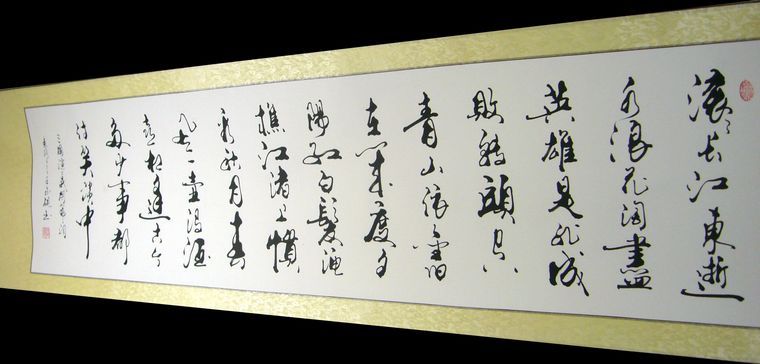 滚〻长江東逝
水浪花淘盡
英雄是非成
敗轉頭空
青山依旧
在几度夕
陽红白髮渔
樵江渚上慣
看秋月春
風一壶濁酒
喜相逢古今
多少事都
付笑談中
三國演义开篇词